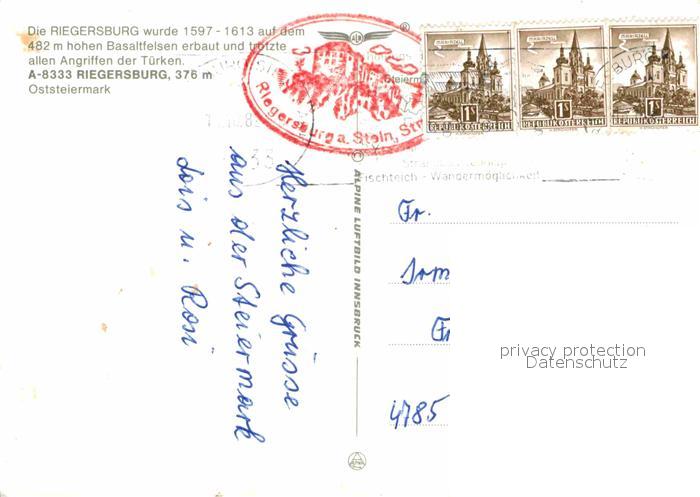 Die RIEGERSBURG wurde 1597 - 1613 auf dem
482 m hohen Basaltfelsen erbaut und trotzte
allen Angriffen der Türken.
A-8333 RIEGERSBURG, 376 m
Oststeiermark
Riegersburg a. Stein, Str
MARIAZELL
1S
REPUBLIK ÖSTERREICH
MARIAZELL
1S
REPUBLIK ÖSTERREICH
MARIAZELL
1S
REPUBLIK ÖSTERREICH
ischteich - Wandermöglichkeit
Herzliche Grüsse
aus der Steiermark
Lois u. Rosi
ALPINE LUFTBILD INNSBRUCK
Fr.
4785
privacy protection
Datenschutz